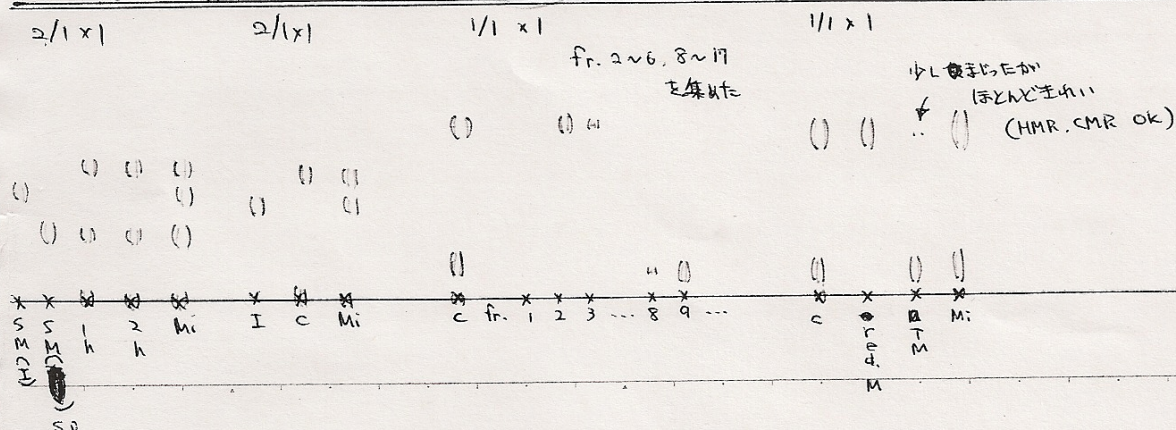 2/1 × 1
2/1 × 1
1/1 × 1
1/1 × 1
fr. 2~6, 8~17
を集めた
少しまじったが
ほとんどきれい
(HMR, CMR OK)
SM(I)
SM(
)
1h
2h
Mi
I
C
Mi
C
fr.
1
2
3
...
8
9
...
C
red. M
TM
Mi